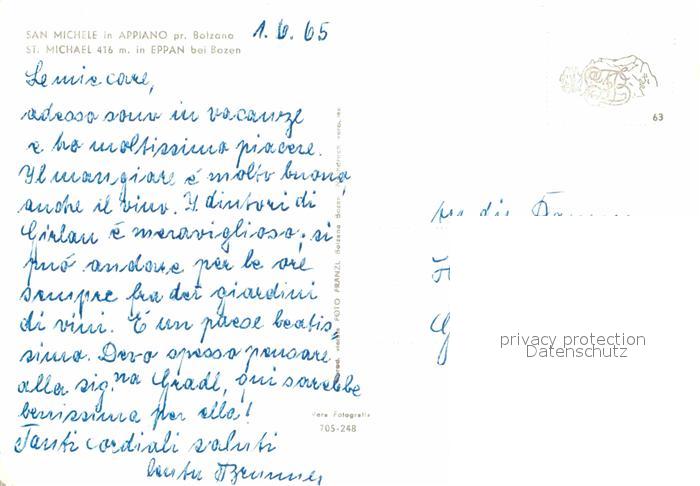 SAN MICHELE in APPIANO pr. Bolzano
ST. MICHAEL 416 m. in EPPAN bei Bozen
1.6.65
Le mie care,
adesso sono in vacanze
e ho moltissimo piacere.
Il mangiare é molto buono,
anche il vino. I dintori di
Girlan é meraviglioso; si
può andare per le ore
sempre fra dei giardini
di vini. É un paese beatis-
simo. Devo spesso pensare
alla sig.na Gradl, qui sarebbe
benissima per ella!
Tanti cordiali saluti
FOTO FRANZL Bolzano Bozen
Vera Fotografia
705-248
63
An die
privacy protection
Datenschutz